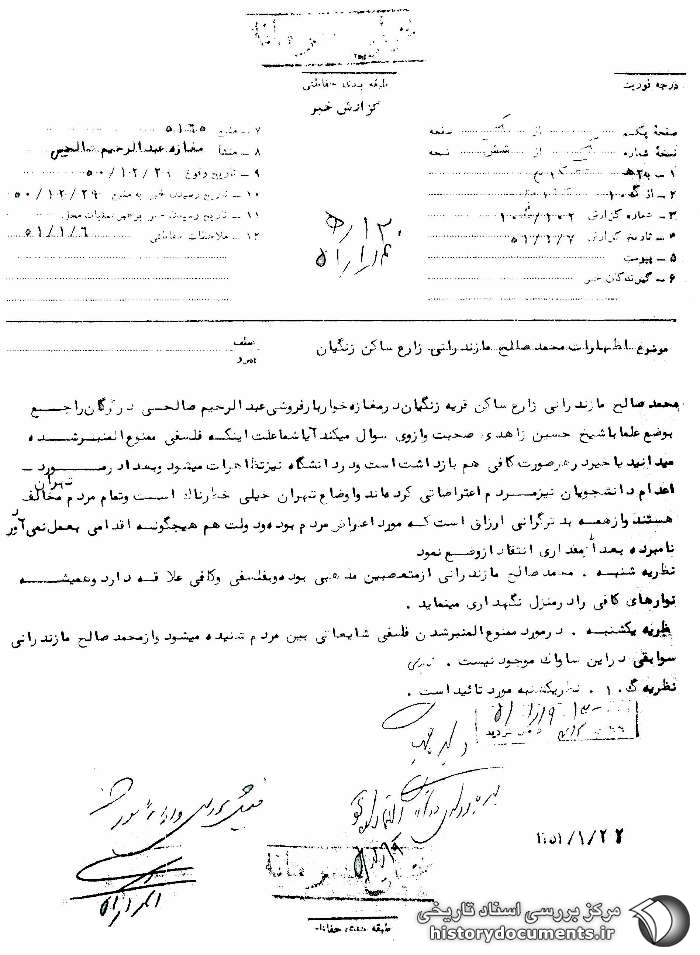 خیلی محرمانه
طبقه بندی حفاظتی
درجه فوریت
گزارش خبر
صفحهٔ یک از یک صفحه
نسخهٔ شماره از شش نسخه
۱ ـ به ۳۴۱
۲ ـ از گ ۱۰
۳ ـ شماره گزارش
۴ ـ تاریخ گزارش ۵۱/۱/۷
۵ ـ پیوست
۶ ـ گیرندگان خبر
۷ ـ منبع ۵۱۶۵
۸ ـ منشأ مغازه عبدالرحیم صالحی
۹ ـ تاریخ وقوع ۵۰/۱۲/۲۱
۱۰ ـ تاریخ رسیدن خبر به منبع ۵۰/۱۲/۲۹
۱۱ ـ تاریخ رسیدن خبر برهبر عملیات محل
۱۲ ـ ملاحظات حفاظتی ۵۱/۱/۶
موضوع اظهارات محمد صالح مازندرانی زارع ساکن زنگیان
عطف
پیرو
محمد صالح مازندرانی زارع ساکن قریه زنگیان در مغازه خواربار فروشی عبدالرحیم صالحی در گرگان راجع
بوضع علما با شیخ حسین زاهدی صحبت و از وی سوال میکند آیا شما علت اینکه فلسفی ممنوع المنبر شده
میدانید یا خیر در هر صورت کافی هم بازداشت است و در دانشگاه نیز تظاهرات میشود و بعدا در مورد ـ
اعدام دانشجویان نیز مردم اعتراضاتی کرده‌اند و اوضاع تهران خیلی خطرناک است و تمام مردم تهران مخالف
هستند و از همه بدتر گرانی ارزاق است که مورد اعتراض مردم بوده و دولت هم هیچگونه اقدامی بعمل نمی‌آورد
نامبرده بعداً مقداری انتقاد از وضع نمود
نظریه شنبه . محمد صالح مازندرانی از متعصبین مذهبی بوده و بفلسفی و کافی علاقه دارد و همیشه
نوارهای کافی را در منزل نگهداری مینماید .
نظریه یکشنبه . در مورد ممنوع المنبر شدن فلسفی شایعاتی بین مردم شنیده میشود و از محمد صالح مازندرانی
سوابقی در این ساواک موجود نیست .
نظریه گ ۱۰ . نظر یکشنبه مورد تائید است .
۵۱/۱/۲۲
خیلی محرمانه
طبقه بندی حفاظتی
مرکز بررسی اسناد تاریخی
historydocuments.ir